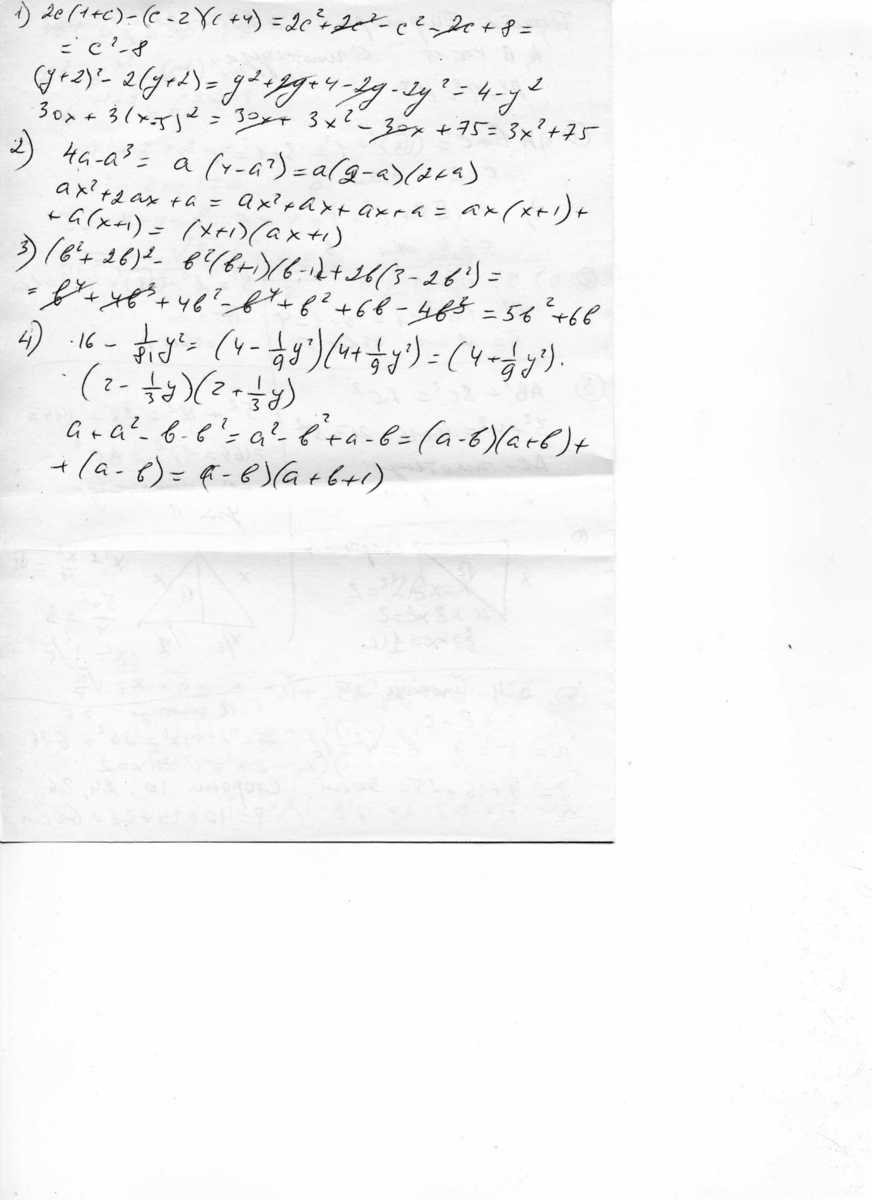 1) 2c(1+c)-(c-2)(c+4)=2c²+2c²-c²-2c+8=
= c²-8
(y+2)²-2(y+2)=y²+2y+4-2y-2y²=4-y²
30x+3(x-5)²=30x+3x²-30x+75=3x²+75
2) 4a-a³= a(4-a²)=a(2-a)(2+a)
ax²+2ax+a=ax²+ax+ax+a=ax(x+1)+
+a(x+1)=(x+1)(ax+1)
3) (b²+2b)²-b²(b+1)(b-1)+2b(3-2b²)=
=b⁴+4b³+4b²-b⁴+b²+6b-4b³=5b²+6b
4) 16-1/81y²=(4-1/9y²)(4+1/9y²)=(4+1/9y²)·
(2-1/3y)(2+1/3y)
a+a²-b-b²=a²-b²+a-b=(a-b)(a+b)+
+(a-b)=(a-b)(a+b+1)